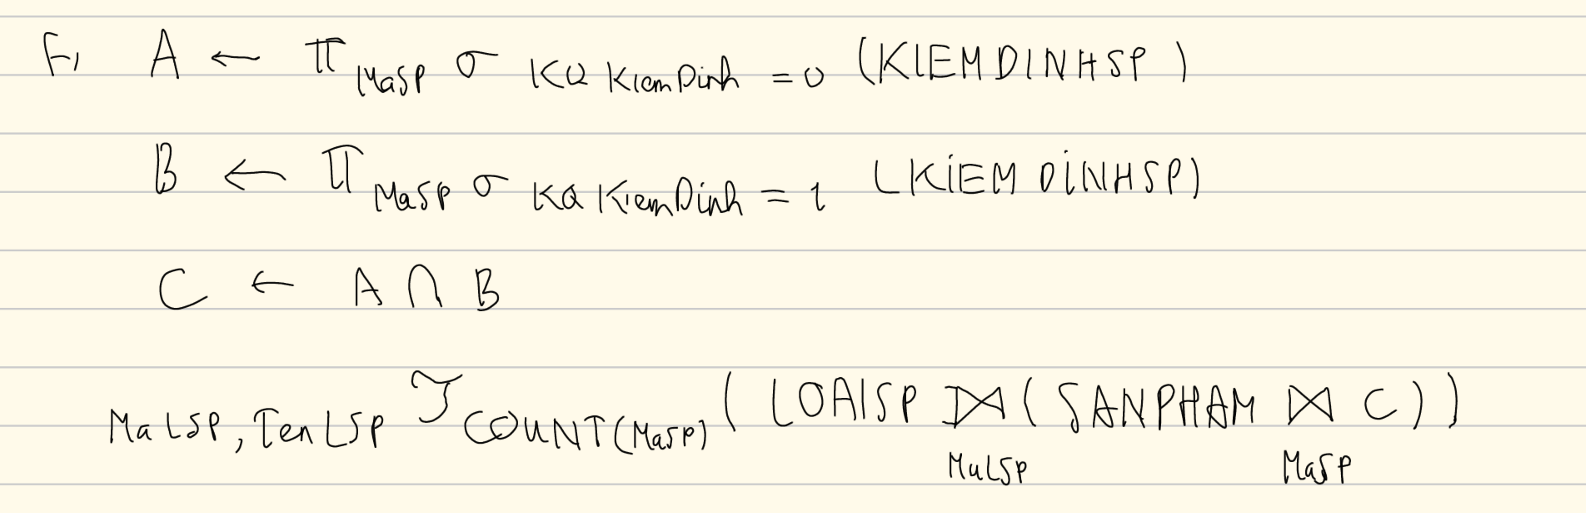 F, A ← π MaSP σ KQ KiemDinh = 0 (KIEMDINHSP)
B ← π MaSP σ KQ KiemDinh = 1 (KIEM DINHSP)
C ← A ∩ B
MaLSP, TenLSP ℑ COUNT(MaSP) (LOAISP ⟕ (SANPHAM ⋈ C))
MaLSP MaSP